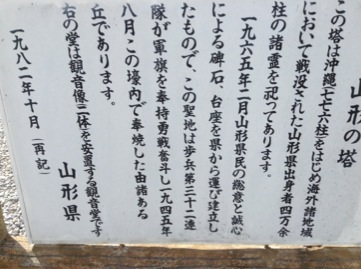 山形の塔
この塔は沖縄(七七六柱)をはじめ海外諸地域
において戦没された山形県出身者四万余
柱の諸霊を祀ってあります。
一九六五年二月山形県民の総意と誠心
による碑石、台座を県から運び建立し
たもので、この聖地は歩兵第三十二連
隊が軍旗を奉持勇戦奮斗し一九四五年
八月この壕内で奉焼した由諸ある
丘であります。
右の堂は観音像(一体)を安置する観音堂です
山形県
一九八二年十月(再記)